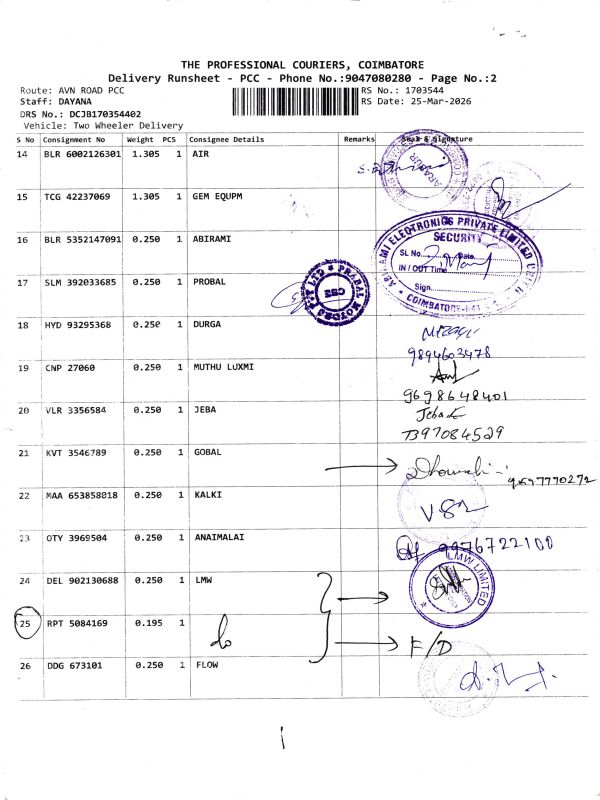 THE PROFESSIONAL COURIERS, COIMBATORE
Delivery Runsheet - PCC - Phone No.:9047080280 - Page No.:2
Route: AVN ROAD PCC RS No.: 1703544
Staff: DAYANA RS Date: 25-Mar-2026
DRS No.: DCJB170354402
Vehicle: Two Wheeler Delivery
S No Consignment No Weight PCS Consignee Details Remarks Seal & Signature
14 BLR 6002126301 1.305 1 AIR
15 TCG 42237069 1.305 1 GEM EQUPM
16 BLR 5352147091 0.250 1 ABIRAMI
ELECTRONICS PRIVATE LIMITED
SECURITY
SL No. Date
IN / OUT Time
Sign.
COIMBATORE
17 SLM 392033685 0.250 1 PROBAL
PRABAL MOTORS PVT LTD
CBE
18 HYD 93295368 0.250 1 DURGA
9894603478
19 CNP 27060 0.250 1 MUTHU LUXMI
9698648401
20 VLR 3356584 0.250 1 JEBA
Jeba
7397084529
21 KVT 3546789 0.250 1 GOBAL
9697770272
22 MAA 653858018 0.250 1 KALKI
23 OTY 3969504 0.250 1 ANAIMALAI
9976722100
24 DEL 902130688 0.250 1 LMW
LMW LIMITED
25 RPT 5084169 0.195 1 do F/D
26 DDG 673101 0.250 1 FLOW